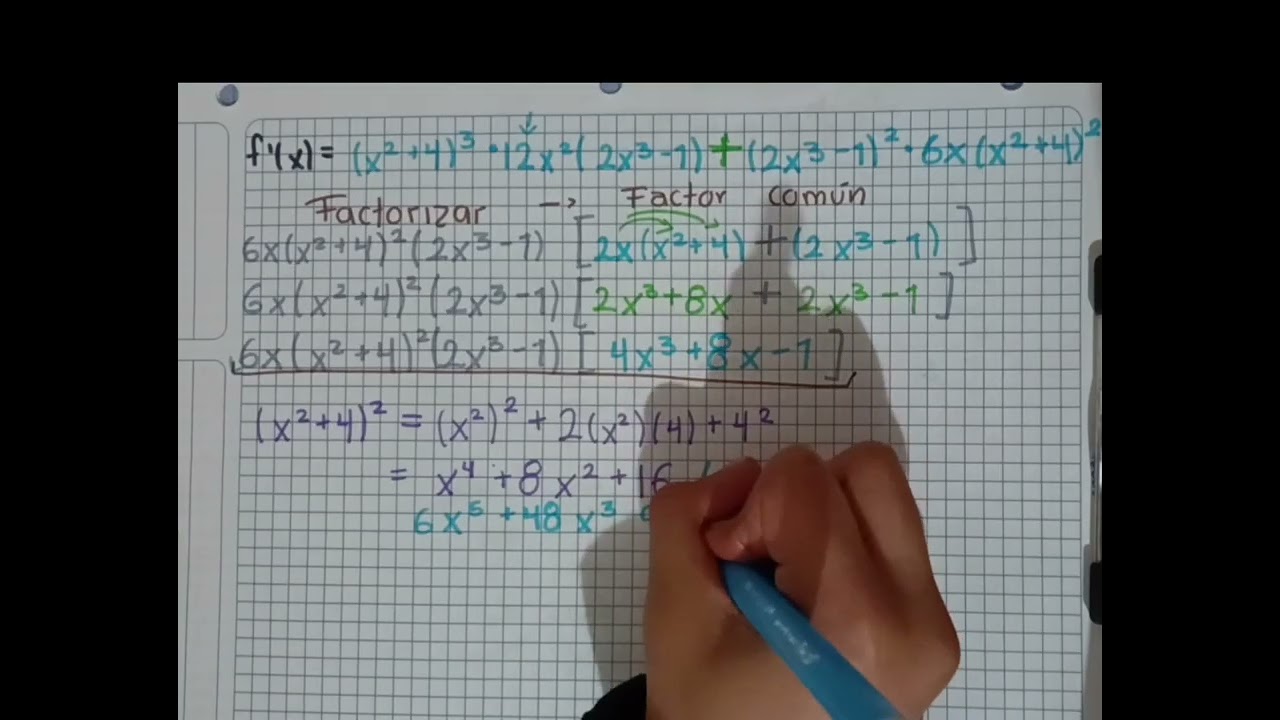 f'(x)= (x²+4)³·12x²(2x³-1)+(2x³-1)²·6x(x²+4)²
Factorizar → Factor común
6x(x²+4)²(2x³-1) [2x(x²+4)+(2x³-1)]
6x(x²+4)²(2x³-1)[2x³+8x + 2x³-1]
6x(x²+4)²(2x³-1)[4x³+8x-1]
(x²+4)² = (x²)²+2(x²)(4)+4²
= x⁴+8x²+16
6x⁵+48x³